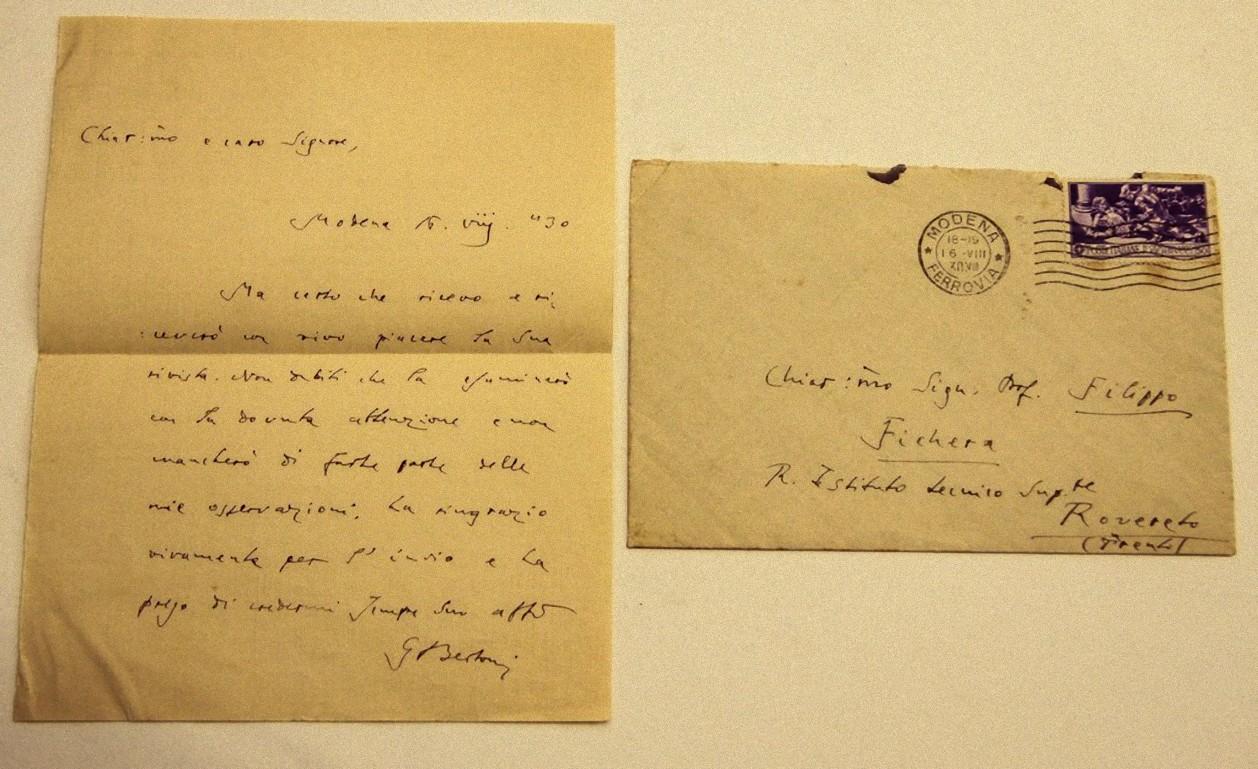 Chiar:mo e caro Signore,
Modena 16. viij. "30
Ma certo che ricevo e ri-
:ceverò con vivo piacere la Sua
rivista. Non dubiti che la esaminerò
con la dovuta attenzione e non
mancherò di farle parte delle
mie osservazioni. La ringrazio
vivamente per l'invio e La
prego di credermi sempre Suo affo
G Bertoni
MODENA
18-19
16 -VIII
FERROVIA
Chiar:mo Sign. Prof. Filippo
Fichera
R. Istituto tecnico Sup.re
Rovereto
(Trento)